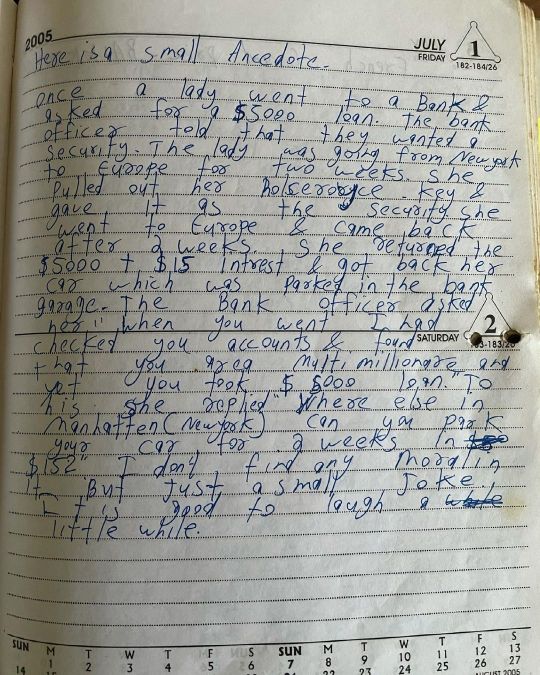 2005
JULY
FRIDAY
1
182-184/26
Here is a small Ancedote.
once a lady went to a Bank &
asked for a $5000 loan. The bank
officer told that they wanted a
security. The lady was going from Newyork
to Europe for two weeks. She
pulled out her holseroryce key &
gave it as the security she
went to Europe & came back
after 2 weeks. She returned the
$5000 + $15 Intrest & got back her
car which was parked in the bank
garage. The Bank officer asked
her " when you went I had
SATURDAY
2
83-183/26
checked you accounts & found
that you area multi millionare and
yet you took $ 5000 loan." To
his she replied "Where else in
manhatten (Newyork) can you park
your car for 2 weeks in
$15?" I dont find any moral in
it. But Just a small Joke!
It is good to laugh a
little while.
SUN M T W T F S SUN M T W T F S
1 2 3 4 5 6 7 8 9 10 11 12 13
14 24 25 26 27
AUGUST 2005